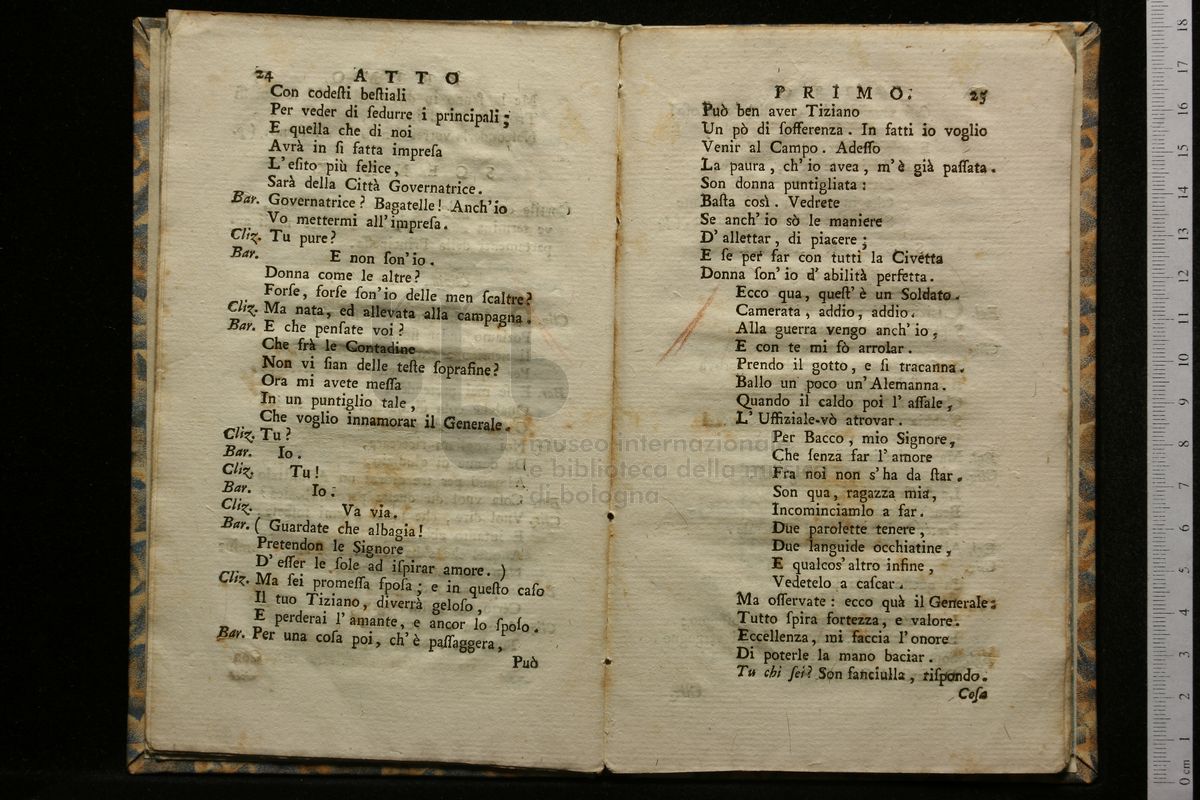 24 ATTO
Con codeſti beſtiali
Per veder di ſedurre i principali;
E quella che di noi
Avrà in ſi fatta impreſa
L'eſito più felice,
Sarà della Città Governatrice.
Bar. Governatrice? Bagatelle! Anch'io
Vo mettermi all'impreſa.
Cliz. Tu pure?
Bar. E non ſon'io.
Donna come le altre?
Forſe, forſe ſon'io delle men ſcaltre?
Cliz. Ma nata, ed allevata alla campagna.
Bar. E che penſate voi?
Che frà le Contadine
Non vi ſian delle teſte ſoprafine?
Ora mi avete meſſa
In un puntiglio tale,
Che voglio innamorar il Generale.
Cliz. Tu?
Bar. Io.
Cliz. Tu!
Bar. Io.
Cliz. Va via.
Bar. ( Guardate che albagia!
Pretendon le Signore
D'eſſer le ſole ad iſpirar amore. )
Cliz. Ma ſei promeſſa ſpoſa; e in queſto caſo
Il tuo Tiziano, diverrà geloſo,
E perderai l'amante, e ancor lo ſpoſo.
Bar. Per una coſa poi, ch'è paſſaggera,
Può
PRIMO. 25
Può ben aver Tiziano
Un pò di ſofferenza. In fatti io voglio
Venir al Campo. Adeſſo
La paura, ch'io avea, m'è già paſſata.
Son donna puntigliata:
Baſta così. Vedrete
Se anch'io sò le maniere
D'allettar, di piacere;
E ſe per far con tutti la Civetta
Donna ſon'io d'abilità perfetta.
Ecco qua, queſt'è un Soldato.
Camerata, addio, addio.
Alla guerra vengo anch'io,
E con te mi fò arrolar.
Prendo il gotto, e ſi tracanna.
Ballo un poco un'Alemanna.
Quando il caldo poi l'aſſale,
L'Uffiziale vò atrovar.
Per Bacco, mio Signore,
Che ſenza far l'amore
Fra noi non s'ha da ſtar.
Son qua, ragazza mia,
Incominciamlo a far.
Due parolette tenere,
Due languide occhiatine,
E qualcos'altro infine,
Vedetelo a caſcar.
Ma oſſervate: ecco quà il Generale:
Tutto ſpira fortezza, e valore.
Eccellenza, mi faccia l'onore
Di poterle la mano baciar.
Tu chi ſei? Son fanciulla, riſpondo.
Coſa
museo internazionale
e biblioteca della musica
di bologna
0 cm 1 2 3 4 5 6 7 8 9 10 11 12 13 14 15 16 17 18